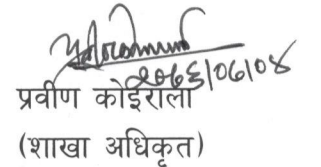 २०७३/०७/०४
प्रवीण कोइराला
(शाखा अधिकृत)